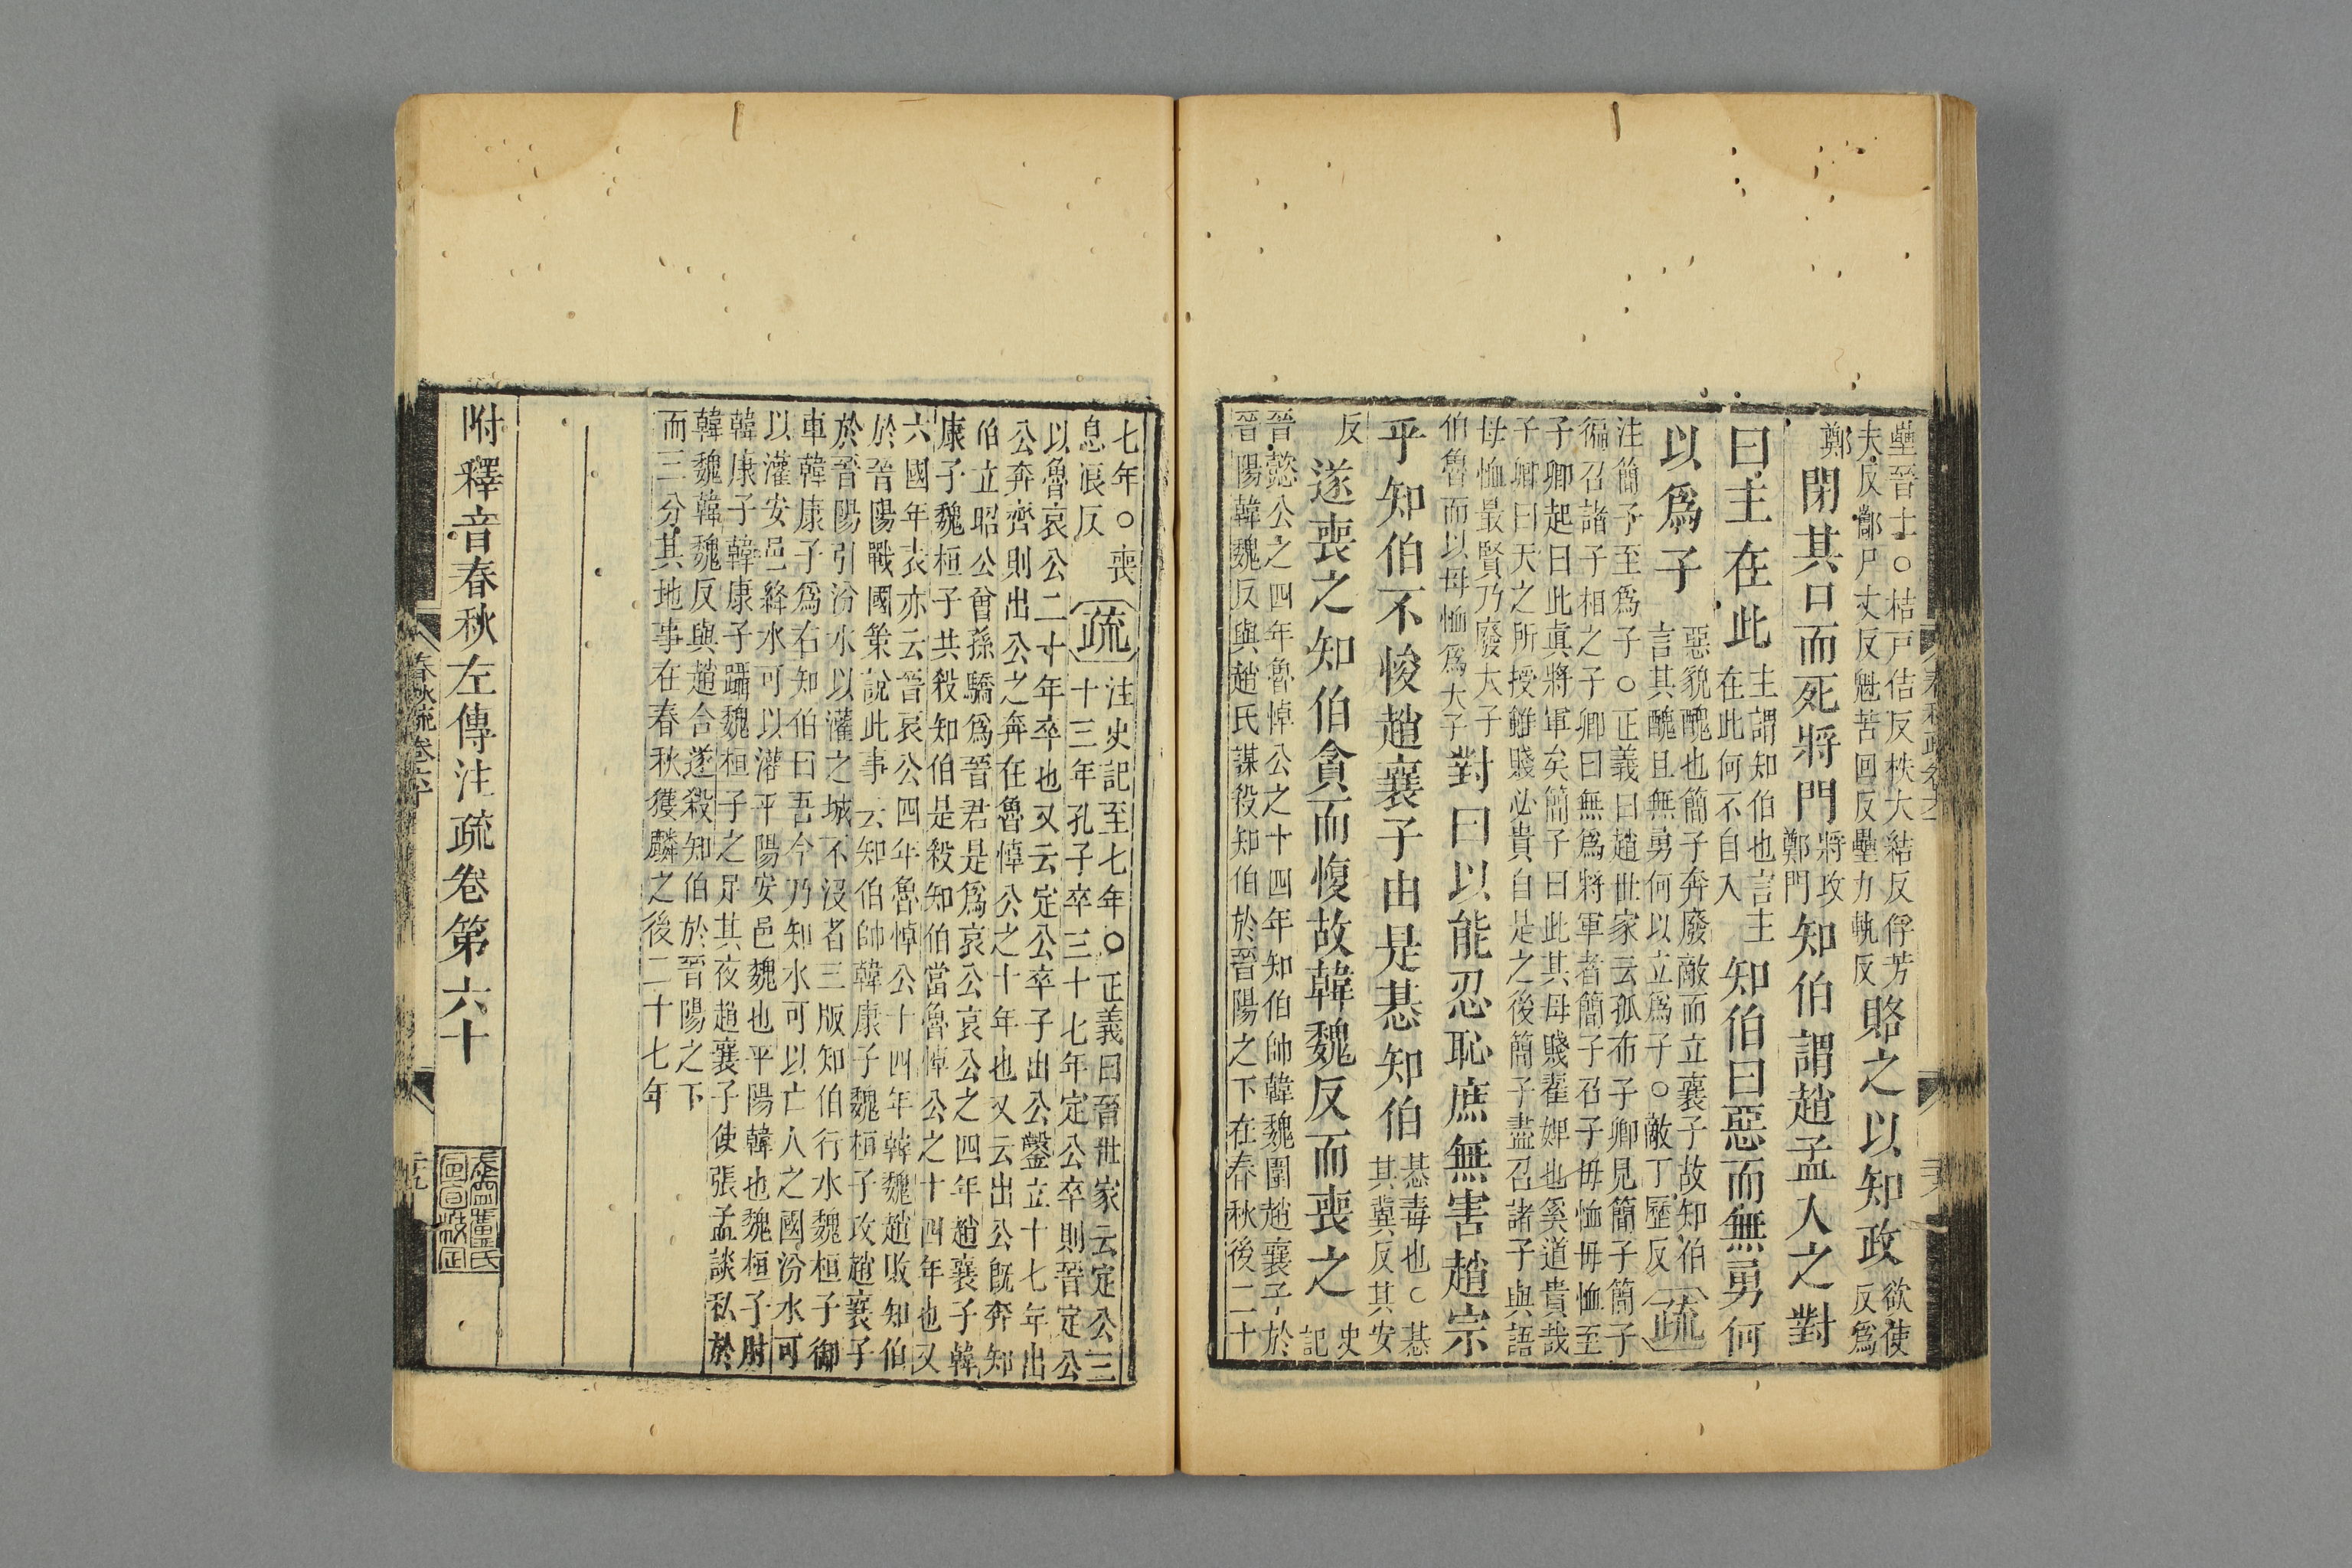 壘晉士○桔戸佶反柣大結反俘芳
夫反鄱尸丈反魁苦回反壘力軌反
賂之以知政
欲使
反爲
鄭
閉其口而死將門
將攻
鄭門
知伯謂趙孟入之對
曰主在此
主謂知伯也言主
在此何不自入
知伯曰惡而無勇何
以爲子
惡貌醜也簡子奔廢敵而立襄子故知伯
言其醜且無勇何以立爲子○敵丁歷反
疏
注簡子至爲子○正義曰趙世家云孤布子卿見簡子簡子
徧召諸子相之子卿曰無爲將軍者簡子召子毋恤毋恤至
子卿起曰此眞將軍矣簡子曰此其母賤翟婢也奚道貴哉
子卿曰天之所授雖賤必貴自是之後簡子盡召諸子與語
毋恤最賢乃廢大子
伯魯而以毋恤爲大子
對曰以能忍恥庶無害趙宗
乎知伯不悛趙襄子由是惎知伯
惎毒也○惎
其冀反其安
反
遂喪之知伯貪而愎故韓魏反而喪之
史
記
晉懿公之四年魯悼公之十四年知伯帥韓魏圍趙襄子於
晉陽韓魏反與趙氏謀殺知伯於晉陽之下在春秋後二十
七年○喪
息浪反
疏
注史記至七年○正義曰晉世家云定公三
十三年孔子卒三十七年定公卒則晉定公
以魯哀公二十年卒也又云定公卒子出公鑿立十七年出
公奔齊則出公之奔在魯悼公之十年也又云出公既奔知
伯立昭公曾孫驕爲晉君是爲哀公哀公之四年趙襄子韓
康子魏桓子共殺知伯是殺知伯當魯悼公之十四年也又
六國年表亦云晉哀公四年魯悼公十四年韓魏趙敗知伯
於晉陽戰國策說此事云知伯帥韓康子魏桓子攻趙襄子
於晉陽引汾水以灌之城不沒者三版知伯行水魏桓子御
車韓康子爲右知伯曰吾今乃知水可以亡人之國汾水可
以灌安邑絳水可以灌平陽安邑魏也平陽韓也魏桓子肘
韓康子韓康子躡魏桓子之足其夜趙襄子使張孟談私於
韓魏韓魏反與趙合遂殺知伯於晉陽之下
而三分其地事在春秋獲麟之後二十七年
附釋音春秋左傳注疏卷第六十
春秋疏卷六十